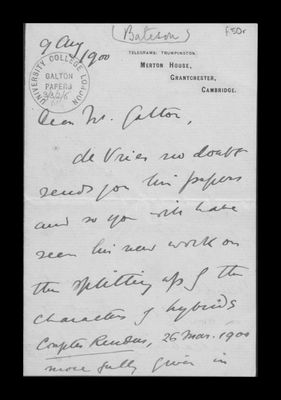 (Bateson)
f50r
9 Aug 1900
TELEGRAMS: TRUMPINGTON.
MERTON HOUSE,
GRANTCHESTER,
CAMBRIDGE.
UNIVERSITY COLLEGE LONDON
GALTON
PAPERS
Dear Mr. Galton,
de Vries no doubt
sends you his papers
and so you will have
seen his new work on
the splitting up of the
characters of hybrids
Comptes Rendus, 26 Mar. 1900
more fully given in